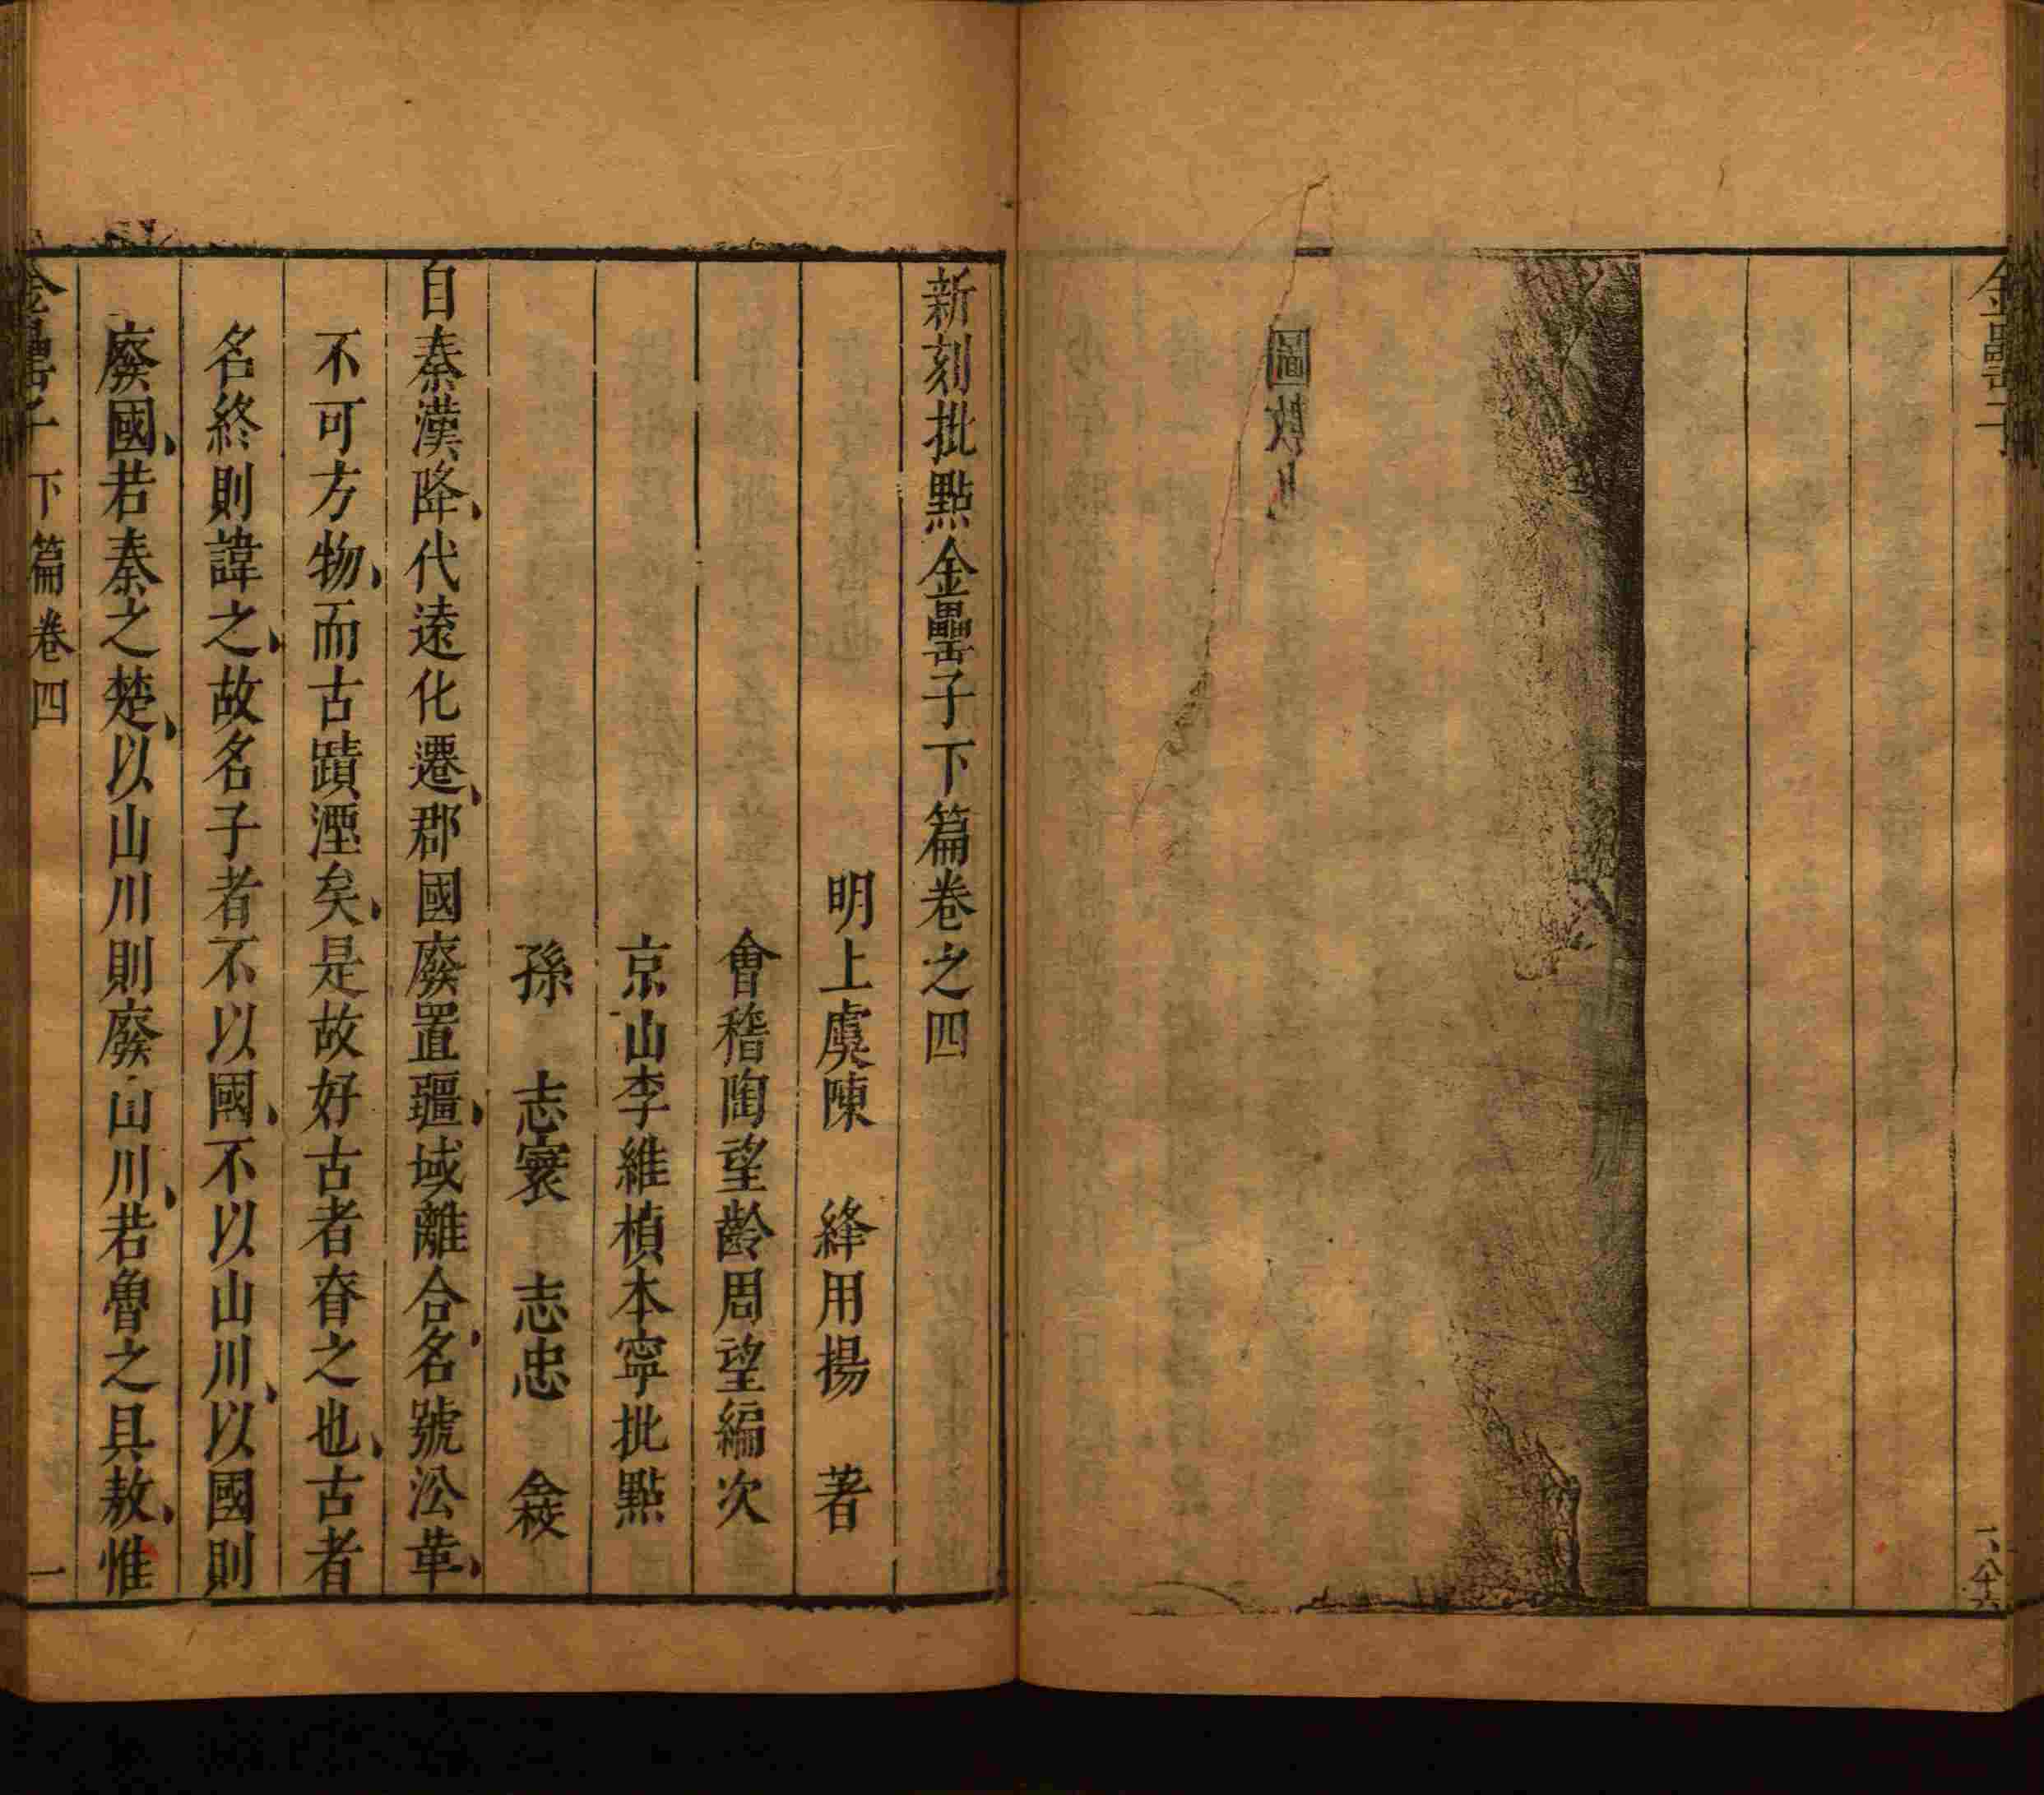 金罍子
新刻批點金罍子下篇卷之四
明上虞陳　絳用揚　著
會稽陶望齡周望編次
京山李維楨本寧批點
孫　志寰　志忠　仝挍
自秦漢降代遠化遷郡國廢置疆域離合名號㳂革
不可方物而古蹟湮矣是故好古者眘之也古者
名終則諱之故名子者不以國不以山川以國則
廢國若秦之楚以山川則廢山川若魯之具敖惟
金罍子　下篇卷四　一